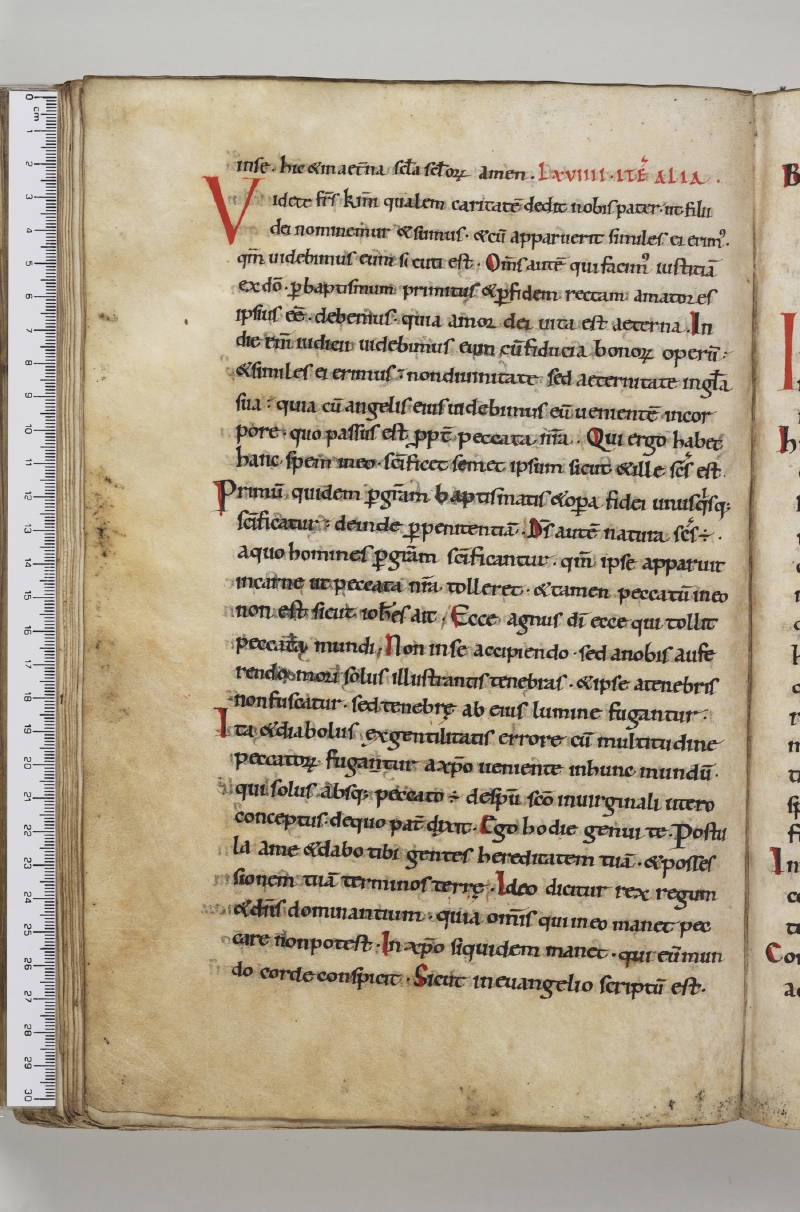 inse. hic & in aet̅na sc̅la sc̅loꝝ amen. LXVIIII. ITE̅ ALIA.
Videte fr̅s k̅mi qualem caritate̅ dedit nobis pater. ut filii
dei nominemur & simus. & cu̅ apparuerit similes ei erimꝰ.
qm̅ uidebimus eum sicuti est. Om̅s aute̅ qui facimꝰ iusticia̅
ex do̅. ꝑ baptismum primitus & ꝑ fidem rectam amatores
ipsius e̅e. debemus. quia amor dei uita est aeterna. In
die eni̅ iudicii uidebimus eum cu̅ fiducia bonoꝝ operu̅.
& similes ei erimus. non diuinitate sed aeternitate in gl̅a
sua. quia cu̅ angelis eius uidebimus eu̅ ueniente̅ in cor
pore. quo passus est ppt̅ peccata nr̅a. Qui ergo habet
hanc spem in eo. sc̅ificet semet ipsum sicut & ille sc̅s est.
Primu̅ quidem ꝑ gr̅am baptismatis & op̅a fidei unusq̅sq;
sc̅ificatur. deinde ꝑ penitentia̅. Ds̅ aute̅ natura sc̅s ÷.
a quo homines ꝑ gr̅am sc̅ificantur. qm̅ ipse apparuit
in carne ut peccata nr̅a tolleret. & tamen peccatu̅ in eo
non est sicut ioh̅es ait, Ecce agnus di̅ ecce qui tollit
peccata mundi, Non in se accipiendo. sed a nobis aufe
rendo, more solus illustrantis tenebras. & ipse a tenebris
non fuscatur. sed tenebrę ab eius lumine fugantur.
Ita & diabolus ex gentilitatis errore cu̅ multitudine
peccatoꝝ fugantur a xp̅o ueniente in hunc mundu̅.
qui solus absq; peccato ÷ de sp̅u sc̅o in uirginali utero
conceptus. de quo pat̅ dixit. Ego hodie genui te. Postu
la a me & dabo tibi gentes hereditatem tua̅. & posses
sionem tua̅ terminos terrę. Ideo dicitur rex regum
& dn̅s dominantium. quia omis̅ qui in eo manet pec
care non potest. In xp̅o siquidem manet. qui eu̅ mun
do corde conspicit. Sicut in euangelio scriptu̅ est.